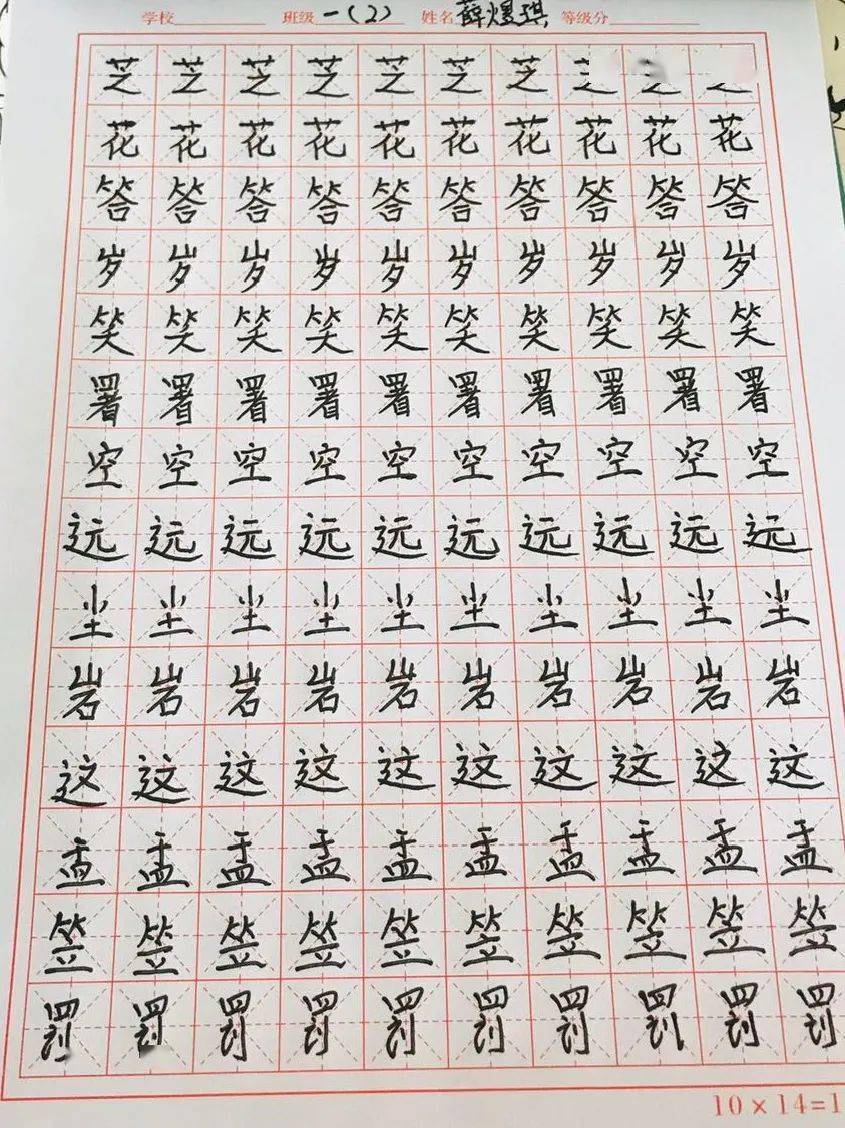 学校 班级 一(2) 姓名 薛煜琪 等级分
芝 芝 芝 芝 芝 芝 芝
花 花 花 花 花 花 花 花 花 花
答 答 答 答 答 答 答 答 答 答
岁 岁 岁 岁 岁 岁 岁 岁 岁 岁
笑 笑 笑 笑 笑 笑 笑 笑 笑 笑
署 署 署 署 署 署 署 署 署 署
空 空 空 空 空 空 空 空 空 空
远 远 远 远 远 远 远 远 远 远
尘 尘 尘 尘 尘 尘 尘 尘 尘 尘
岩 岩 岩 岩 岩 岩 岩 岩 岩 岩
这 这 这 这 这 这 这 这 这 这
盂 盂 盂 盂 盂 盂 盂 盂 盂 盂
笠 笠 笠 笠 笠 笠 笠 笠 笠 笠
罚 罚 罚 罚 罚 罚 罚 罚 罚 罚
10×14=1